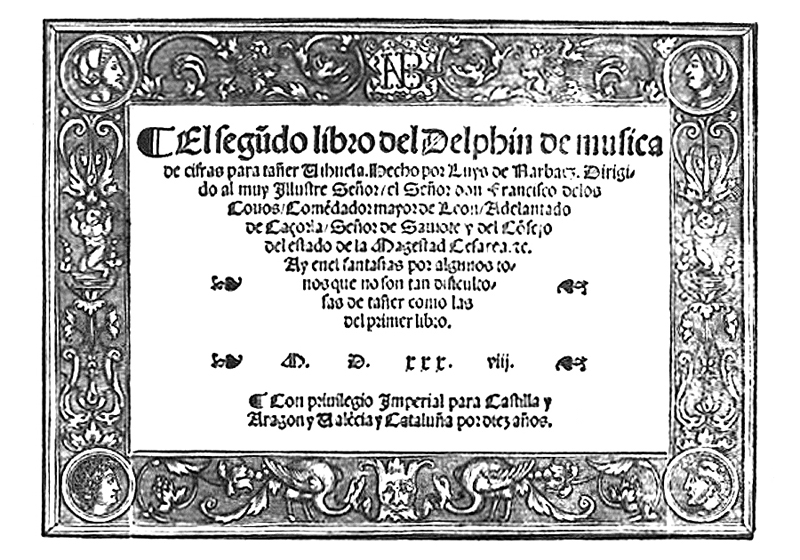 ¶ El segũdo libro del Delphin de musica
de cifras para tañer Vihuela. Hecho por Luys de Narbaez. Dirigi-
do al muy Illustre Señor/el Señor don Francisco delos
Covos/Comẽdador mayor de Leon/Adelantado
de Caçorla/Señor de Saviote y del Cõsejo
del estado de la Magestad Cesarea.⁊c.
Ay enel fantasias por algunos to-
nos que no son tan dificulto-
sas de tañer como las
del primer libro.
M. D. xxx. viij.
¶ Con privilegio Imperial para Castilla y
Aragon y Valẽcia y Cataluña por diez años.